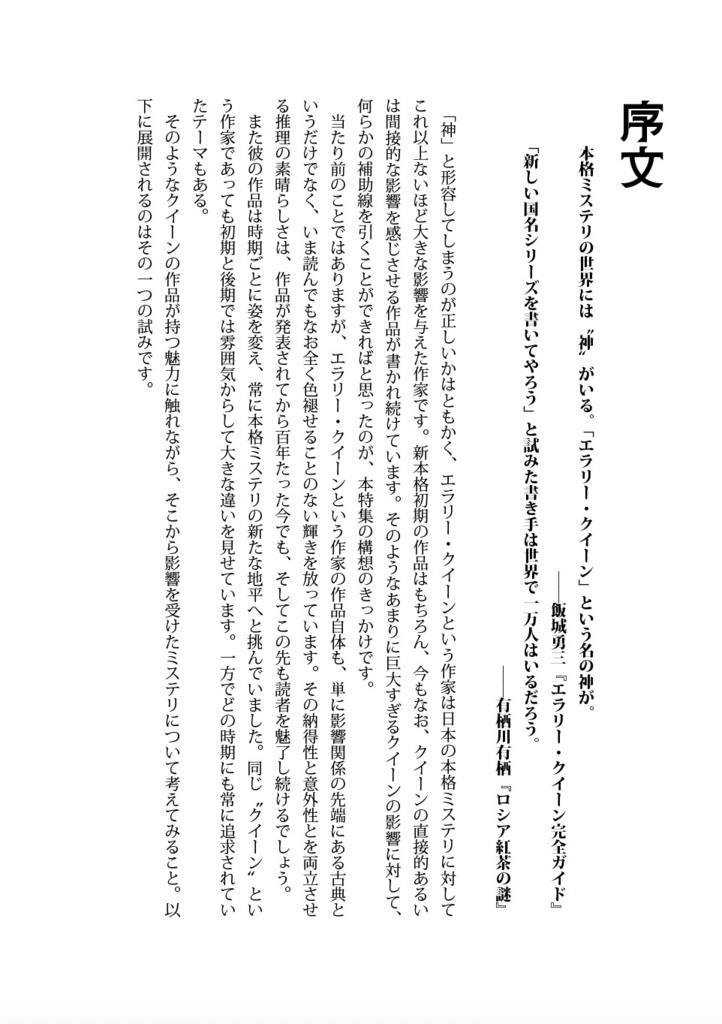 序文
本格ミステリの世界には〝神〟がいる。「エラリー・クイーン」という名の神が。
――飯城勇三『エラリー・クイーン完全ガイド』
「新しい国名シリーズを書いてやろう」と試みた書き手は世界で一万人はいるだろう。
――有栖川有栖『ロシア紅茶の謎』
「神」と形容してしまうのが正しいかはともかく、エラリー・クイーンという作家は日本の本格ミステリに対して
これ以上ないほど大きな影響を与えた作家です。新本格初期の作品はもちろん、今もなお、クイーンの直接的あるい
は間接的な影響を感じさせる作品が書かれ続けています。そのようなあまりに巨大すぎるクイーンの影響に対して、
何らかの補助線を引くことができればと思ったのが、本特集の構想のきっかけです。
当たり前のことではありますが、エラリー・クイーンという作家の作品自体も、単に影響関係の先端にある古典と
いうだけでなく、いま読んでもなお全く色褪せることのない輝きを放っています。その納得性と意外性とを両立させ
る推理の素晴らしさは、作品が発表されてから百年たった今でも、そしてこの先も読者を魅了し続けるでしょう。
また彼の作品は時期ごとに姿を変え、常に本格ミステリの新たな地平へと挑んでいました。同じ〝クイーン〟とい
う作家であっても初期と後期では雰囲気からして大きな違いを見せています。一方でどの時期にも常に追求されてい
たテーマもある。
そのようなクイーンの作品が持つ魅力に触れながら、そこから影響を受けたミステリについて考えてみること。以
下に展開されるのはその一つの試みです。